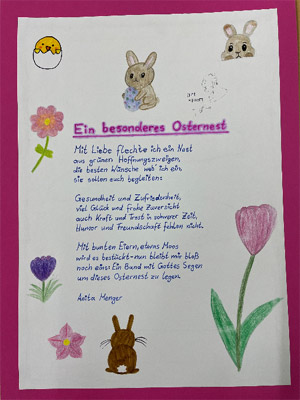 Ein besonderes Osternest
Mit Liebe flechte ich ein Nest
aus grünen Hoffnungszweigen,
die besten Wünsche web' ich ein,
sie sollen euch begleiten:
Gesundheit und Zufriedenheit,
viel Glück und frohe Zuversicht
auch Kraft und Trost in schwerer Zeit,
Humor und Freundschaft fehlen nicht.
Mit bunten Eiern, etwas Moos
wird es bestückt-nun bleibt mir bloß
noch eins: Ein Band mit Gottes Segen
um dieses Osternest zu legen.
Anita Menger